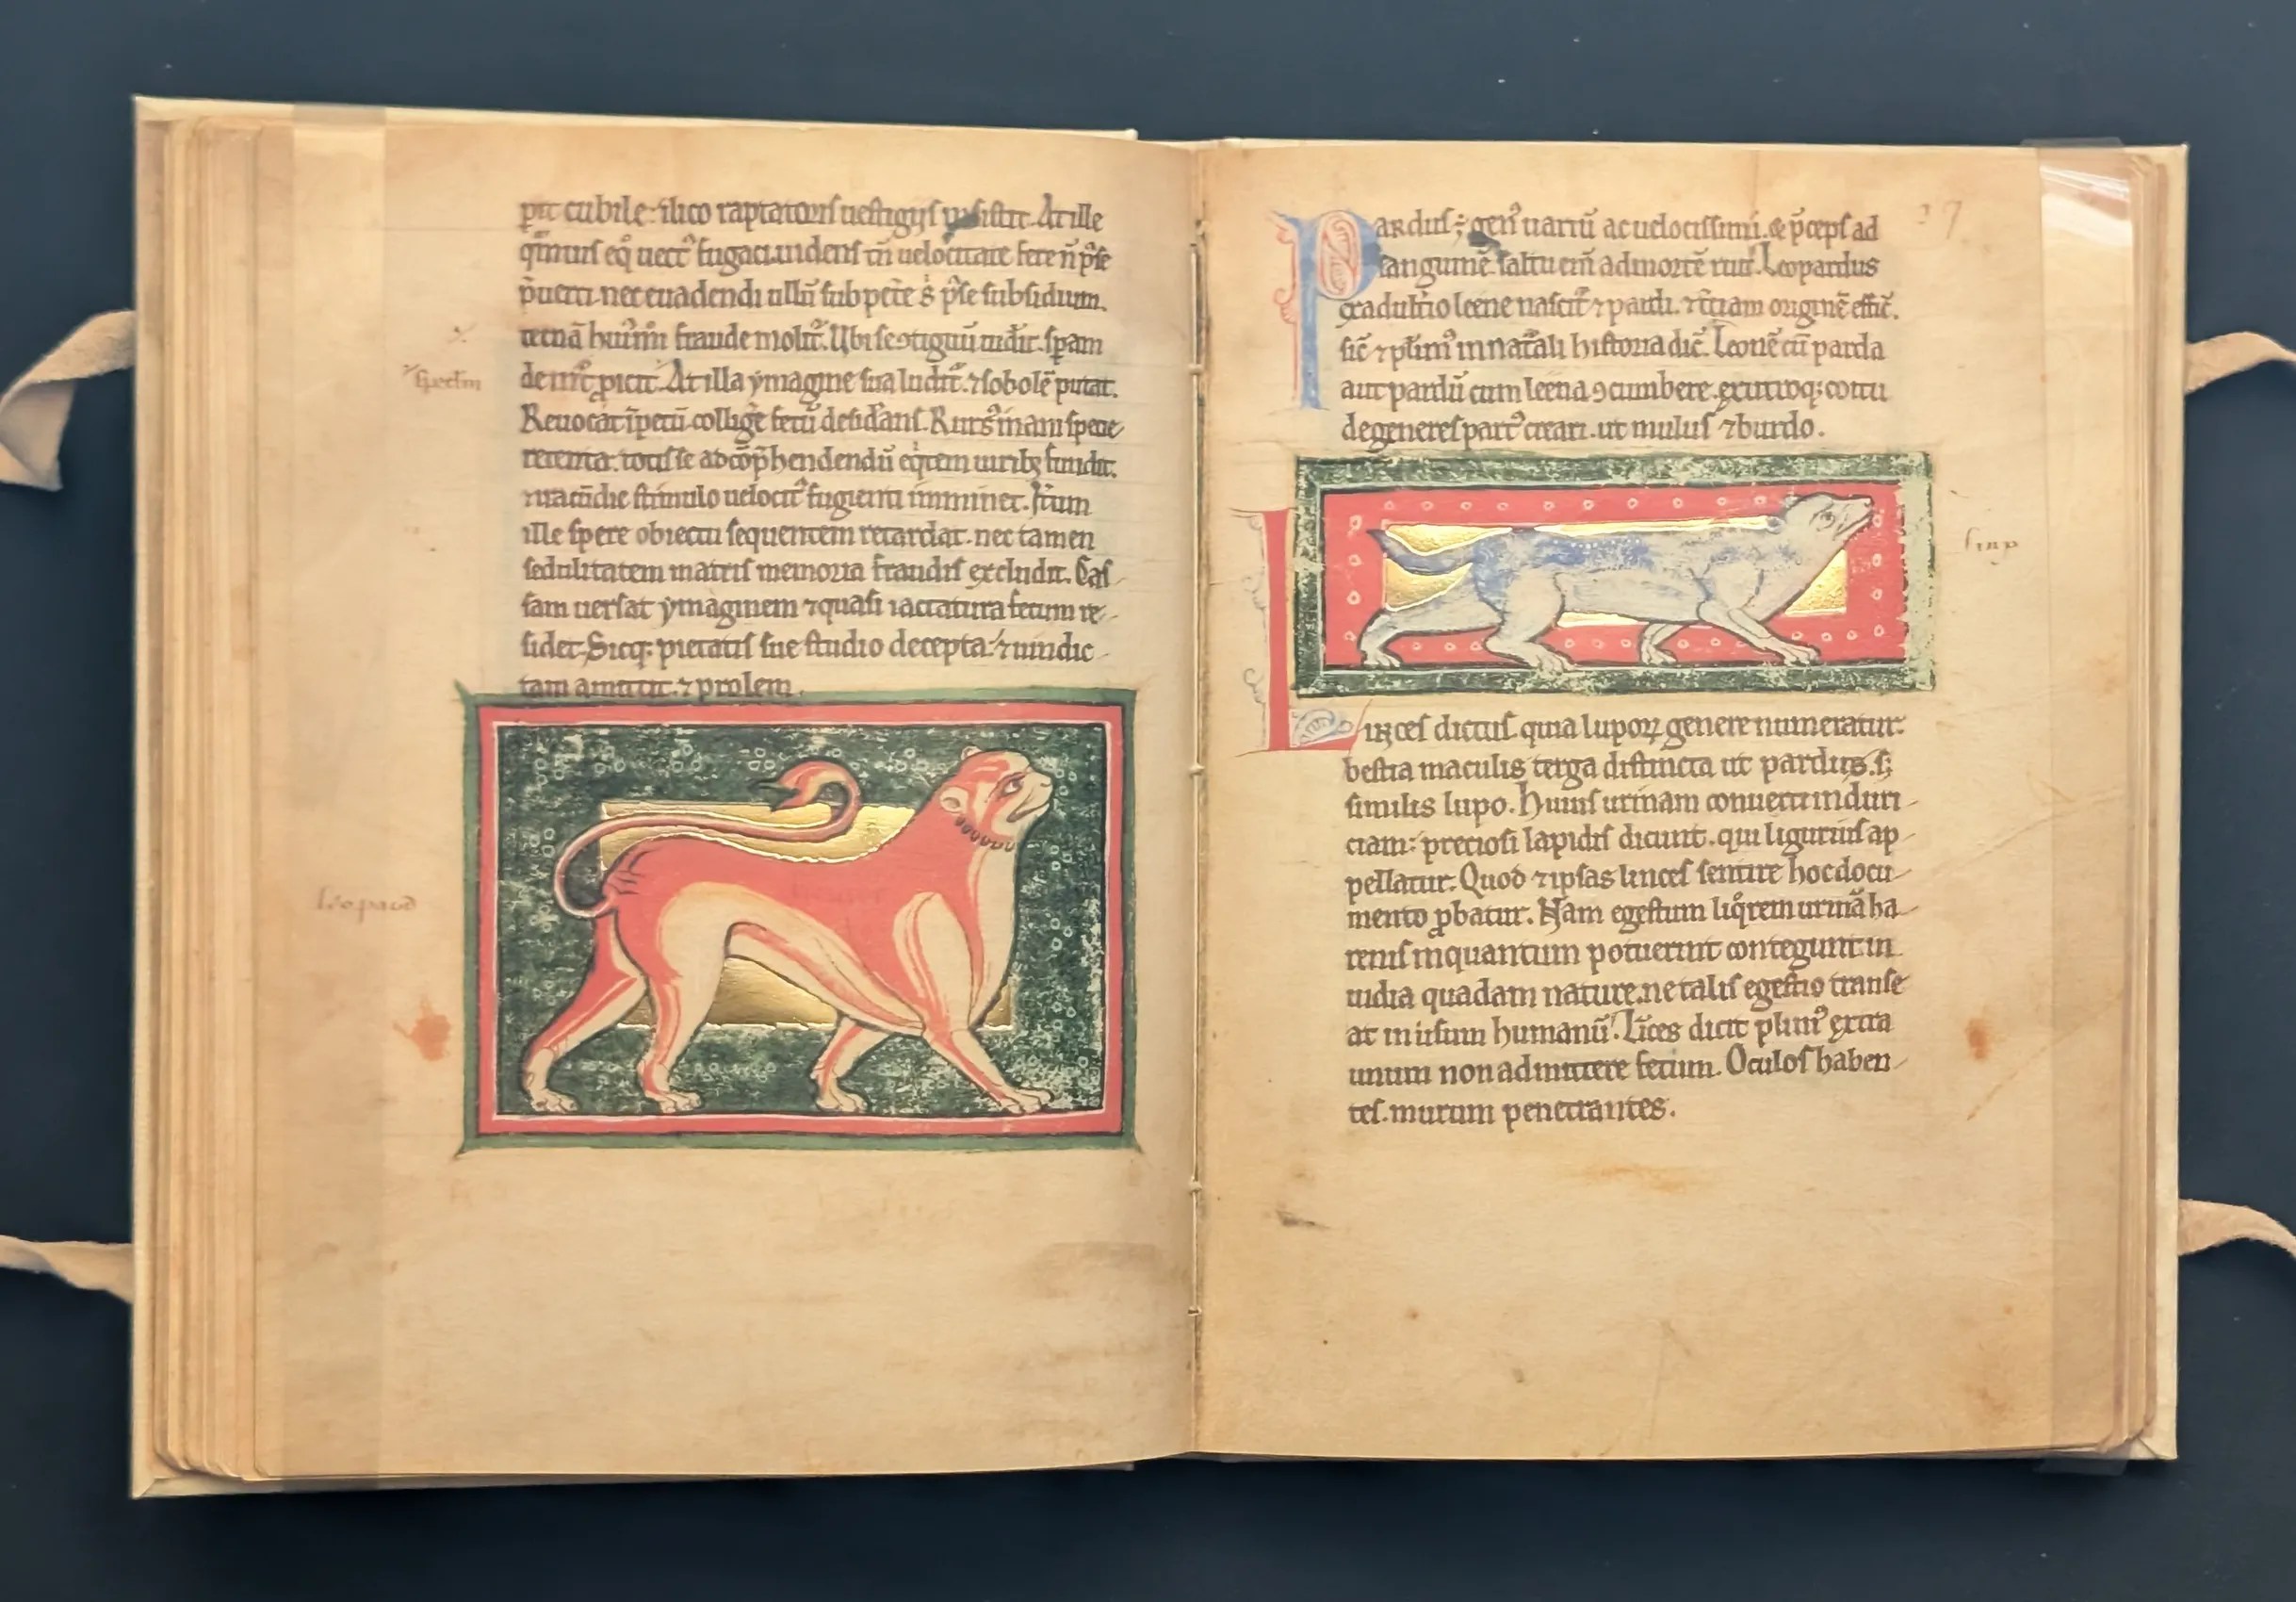 pit cubile: ilico raptatoris uestigijs insistit. At ille
qͣmuis eqͦ uect᾽ fugaci. uidens tn̄ uelocitate fere n̄ p̄se
p̄uerti. nec euadendi ullū sub petē s̓ p̄se subsidium.
tecnā hui᾽mͦi fraude molit᾽. Ubi se 9tiguū uid̓it. sp̄am
de uit᾽ ꝓicit. At illa ymagine sua ludit᾽. ⁊ sobolē putat.
Reuocat īpetū. collig̓e fetū desid̓ans. Rurs᾽ inani specie
retenta. totis se ad cōp̄hendendū eq̓tem uirib; fundit.
⁊ iracūdie stimulo uelocit᾽ fugienti imminet. Itͥum
ille spere obiectu sequentem retardat. nec tamen
sedulitatem matris memoria fraudis excludit. Cas
sam uersat ymaginem ⁊ quasi lactatura fetum re
sidet. Sicq; pietatis sue studio decepta: ⁊ uindic
tam amittit. ⁊ prolem.
leopard
Pardus ÷ gen᾽ uariū ac uelocissimū. & p̄ceps ad
sanguinē. saltu eīm ad mortē ruit. Leopardus
ex adult̓io leene nascit᾽ ⁊ pardi. ⁊ t̓ciam originē effic̄.
sic̄ ⁊ plīni᾽ in nat᾽ali historia dic̄. Leonē cū parda
aut pardū cum leena 9cumbere. ex utroq; coitu
degeneres part᾽ creari. ut mulus ⁊ burdo.
Linces dictus quia lupoꝝ genere numeratur.
bestia maculis terga distincta ut pardus. s;
similis lupo. Huius urinam conuerti in duri
ciam: preciosi lapidis dicunt. qui ligurius ap
pellatur. Quod ⁊ ipsas linces sentire hoc docu
mento ꝓbatur. Nam egestum liq̓rem urinā ha
renis inquantum potuerint contegunt. in
uidia quadam nature. ne talis egestio transe
at in usum humanū. Līces dicit plini᾽ extra
unum non admittere fetum. Oculos haben
tes. murum penetrantes.